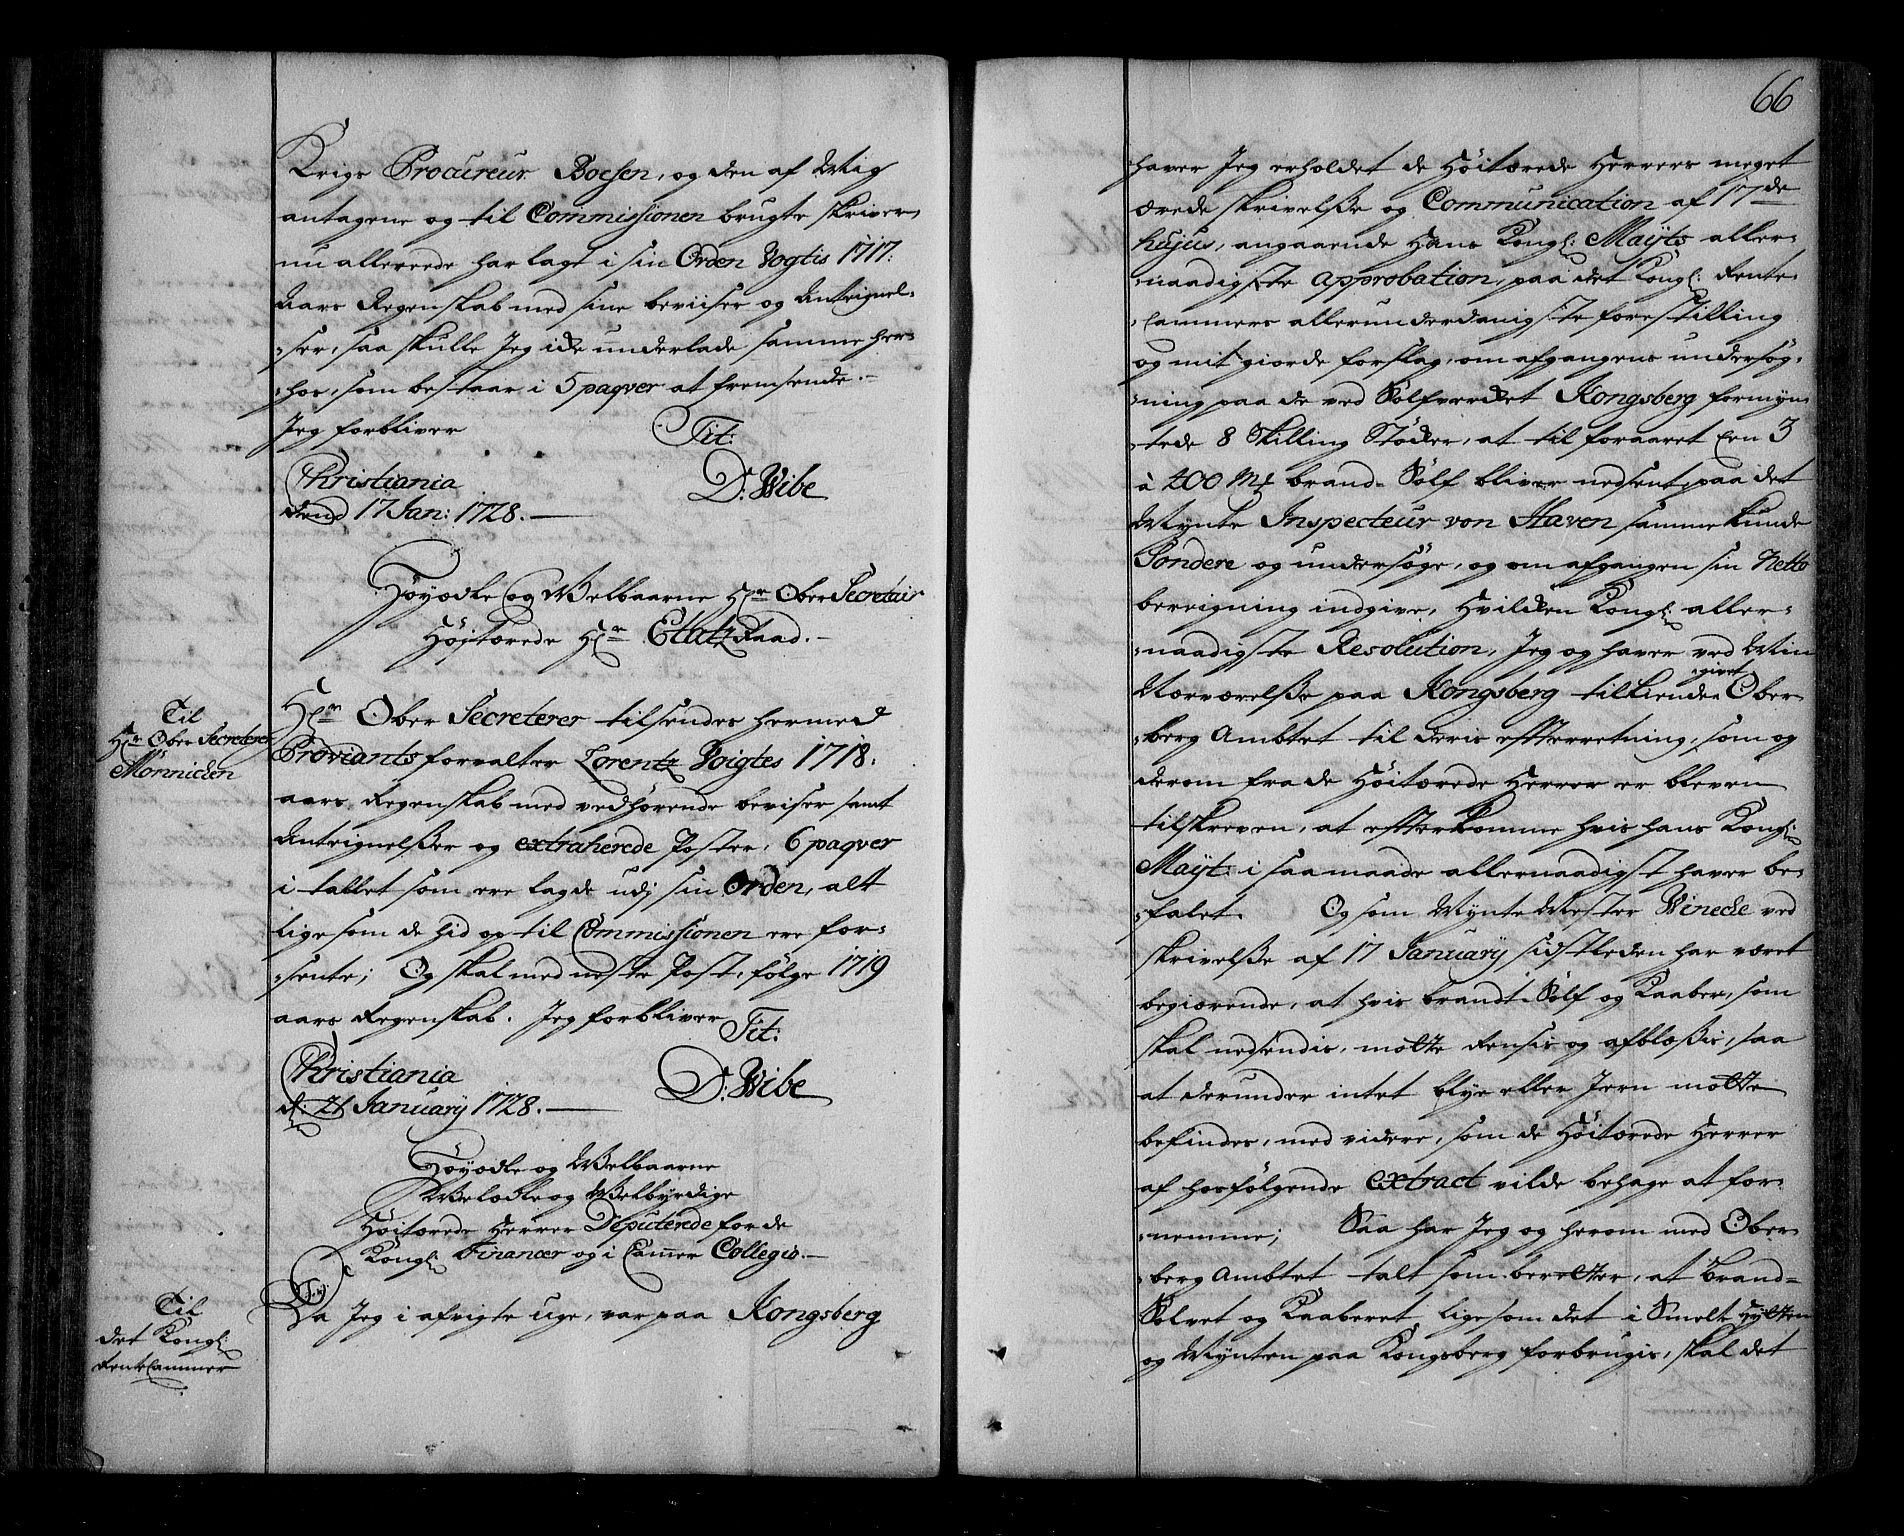 Krigs Procureur Boesen, og den af Mig
antagene og til Commissionen brugte skriver
nu allereede har lagt i sin Orden Vogtis 1717:
Aars Regenskab med sine beviiser og Antegnel-
:ser, saa skulle Jeg icke underlade samme her-
:hos, som bestaar i 5 paqver at fremsende.-
Jeg forbliver
Tit:
Christiania
dend 17 Jan: 1728.
D: Wibe
Höyædle og Welbaarne Hr Ober Secretair
Höjtærede Hr Etatz Raad.-
Til
Hr Ober Secreterer
Mönnichen
Hr Ober Secreterer tilsendes hermed
Proviantsforvalter Lorentz Voigtes 1718:
aars Regenskab med vedhörende beviser samt
Antegnelsser og extraherede Poster, 6 paqver
i tallet som ere lagde udj sin Orden, alt
ligesom de hid op til Commissionen ere for-
:sente; Og skal med neste Post, fölge 1719
aars Regenskab. Jeg forbliver
Tit:
Christiania
d: 21 January 1728.
D: Wibe
Höyædle og Welbaarne
Welædle og Welbyrdige
Höitærede Herrer Deputerede for de
Kongl: Financer og i Cammer Collegio.-
Til
det Kongl:
Rente Cammer
Da Jeg i afvigte uge, var paa Kongsberg
66
haver Jeg erholdet de Höitærede Herrers meget
ærede skrivelsse og Communication af 17de
hujus, angaaende Hans Kongl: Mayts aller-
:naadigste approbation, paa det Kongl: Rente-
:Cammers allerunderdanigste forestilling
og mit giorde forslag, om afgangens undersög-
:ning paa de ved Sölfvercket Kongsberg formyn-
:tede 8 Skilling Stöcker, at til foraaret een 3
à 400 Mk brand-Sölf bliver nedsent, paa det
Mynte Inspecteur von Haven samme kunde
Sondere og undersöge, og om afgangen sin Netto
beregning indgive, Hvilcken Kongl: aller-
:naadigste Resolution, Jeg og haver ved Min
Nærværelsse paa Kongsberg tilkiende givet Ober-
:berg Ambtet til deris efterretning, som og
derom fra de Höitærede Herrer er bleven
tilskreven, at efterkomme hvis hans Kongl:
Mayt: i saa maade allernaadigst haver be-
:falet. Og som Mynte Mester Winecke ved
skrivelsse af 17 January sidstleden har været
begiærende, at hvis brandt-Sölf og Kaaber, som
skal nedsendis, motte Rensis og afblæssis, saa
at derunder intet blye eller Jern motte
befindes, med videre, som de Höitærede Herrer
af hosfölgende extract vilde behage at for-
:nemme; Saa har Jeg og herom med Ober-
:berg Ambtet talt som beretter, at Brand-
Sölvet og Kaaberet ligesom det i Smelt Hytten
og Mynten paa Kongsberg forbrugis, skal det